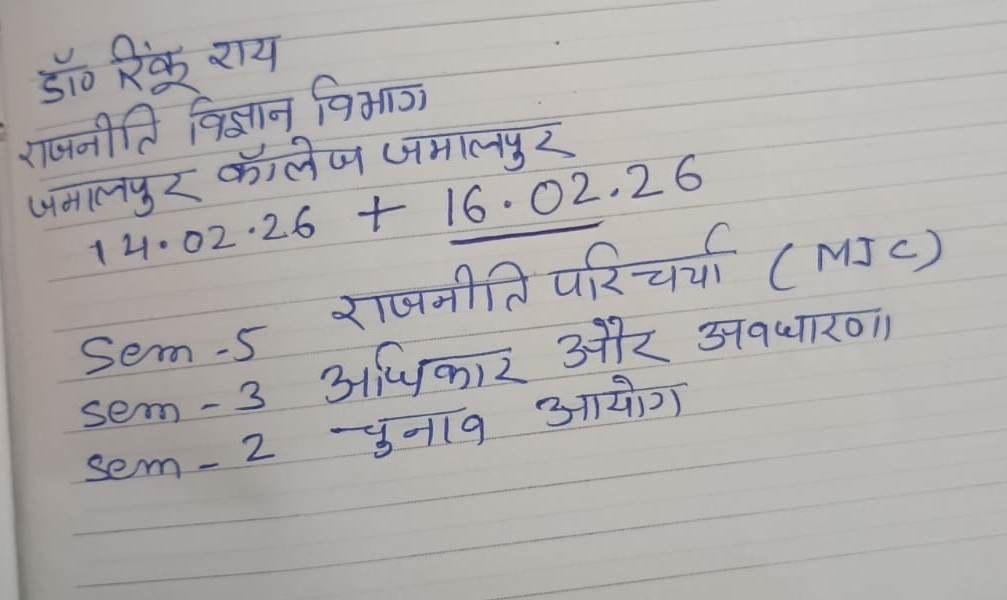 डॉ० रिंकू राय
राजनीति विज्ञान विभाग
जमालपुर कॉलेज जमालपुर
14.02.26 + 16.02.26
Sem-5 राजनीति परिचर्चा (MJC)
Sem-3 अधिकार और अवधारणा
Sem-2 चुनाव आयोग